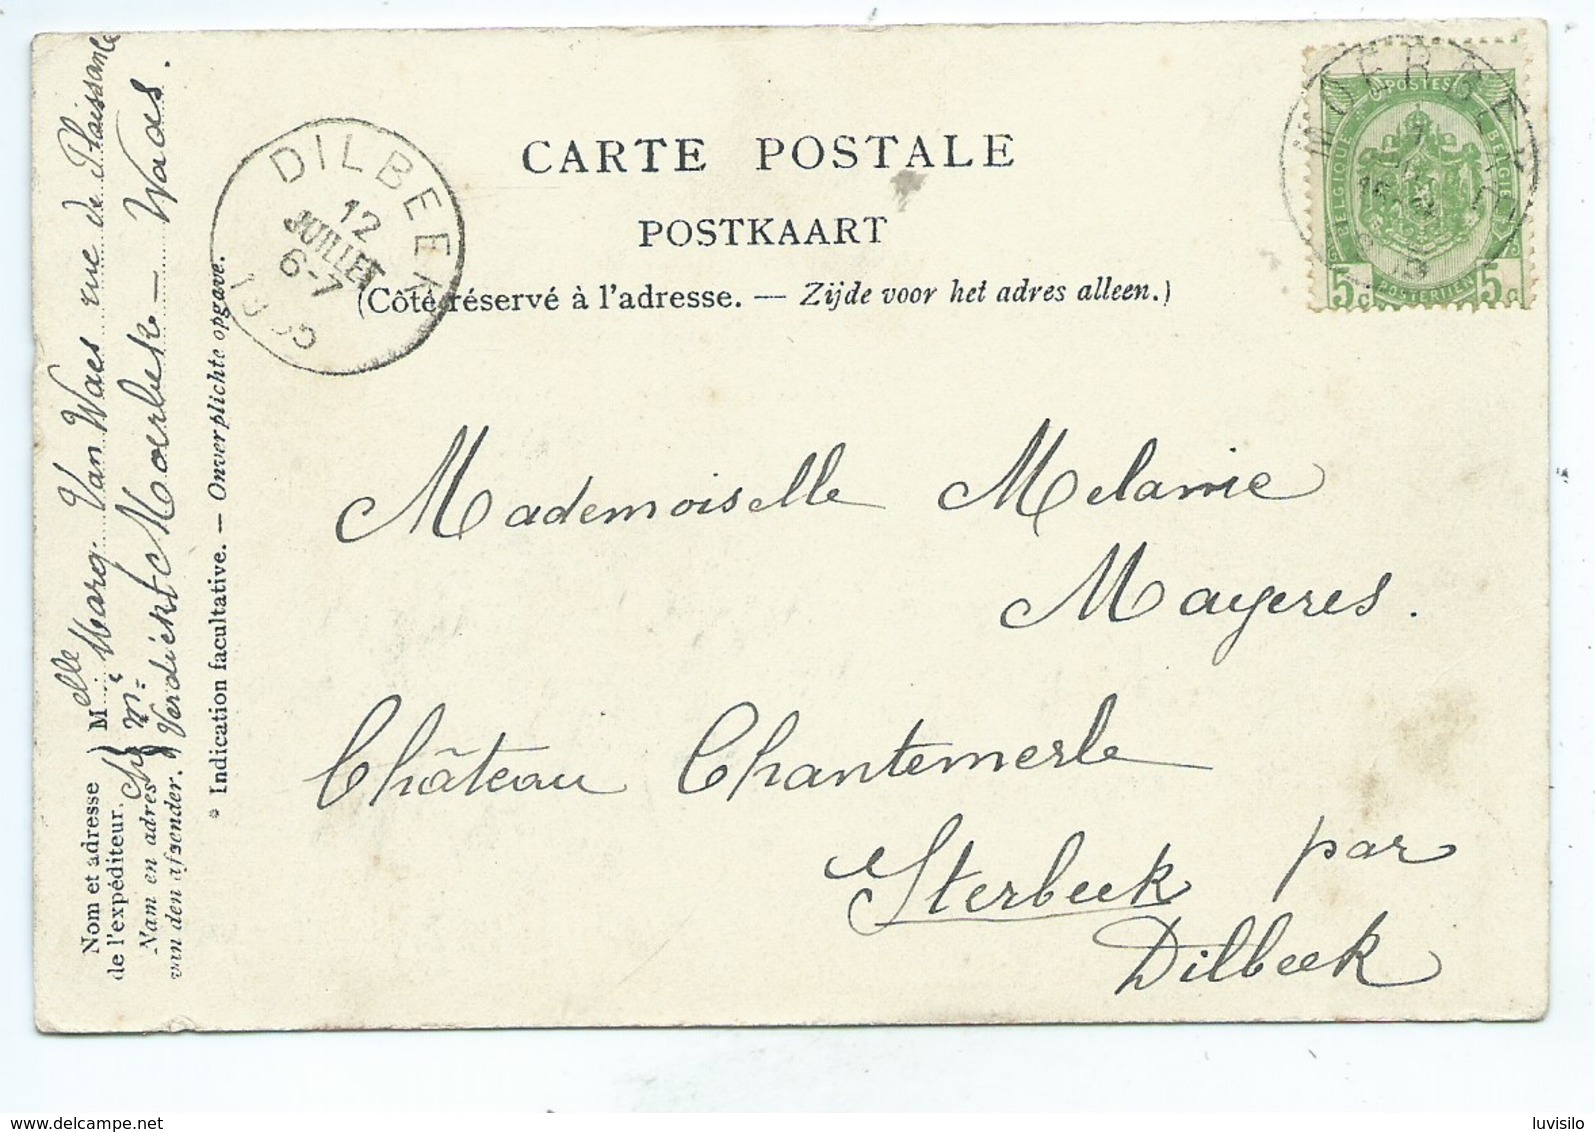 CARTE POSTALE
POSTKAART
(Côté réservé à l'adresse. — Zijde voor het adres alleen.)
DILBEEK
12
JUILLET
6-7
MOERBEKE
POSTES
BELGIQUE
BELGIE
POSTERIJEN
5c
5c
Mademoiselle Melanie
Mayeres.
Château Chantemerle
Sterbeek par
Dilbeek
Nom et adresse
de l'expéditeur.
Naam en adres
van den afzender.
Melle Marg. Van Waes rue de Plaisance
Verdickt Moerbeke – Waas.
* Indication facultative. — Onverplichte opgave.
delcampe.net
luvisilo